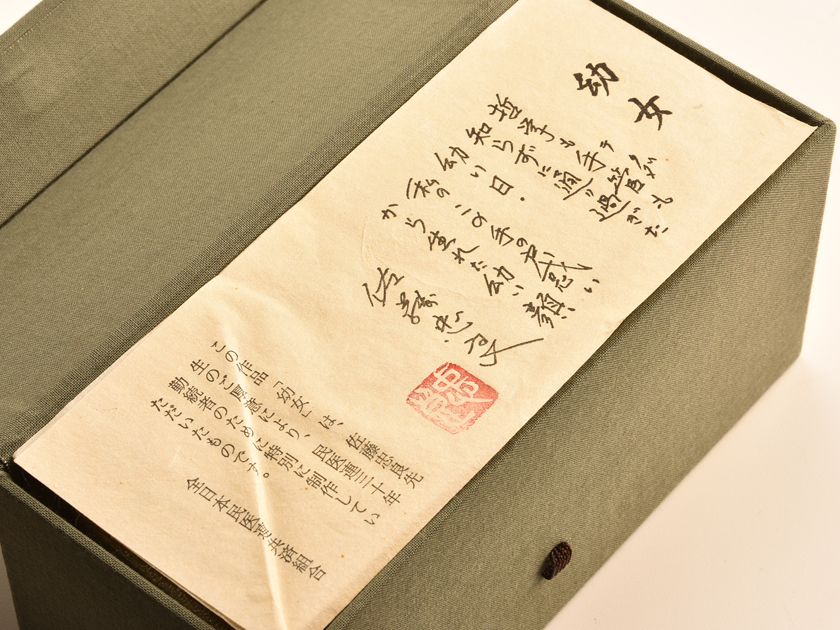 幼女
哲学も手管も
知らずに通り過ぎた
幼い日.
私のこの手の
から生れた幼い顔
佐藤忠良
この作品「幼女」は、佐藤忠良先
生のご厚意により、民医連三十年
勤続者のために特別に制作してい
ただいたものです。
全日本民医連共済組合